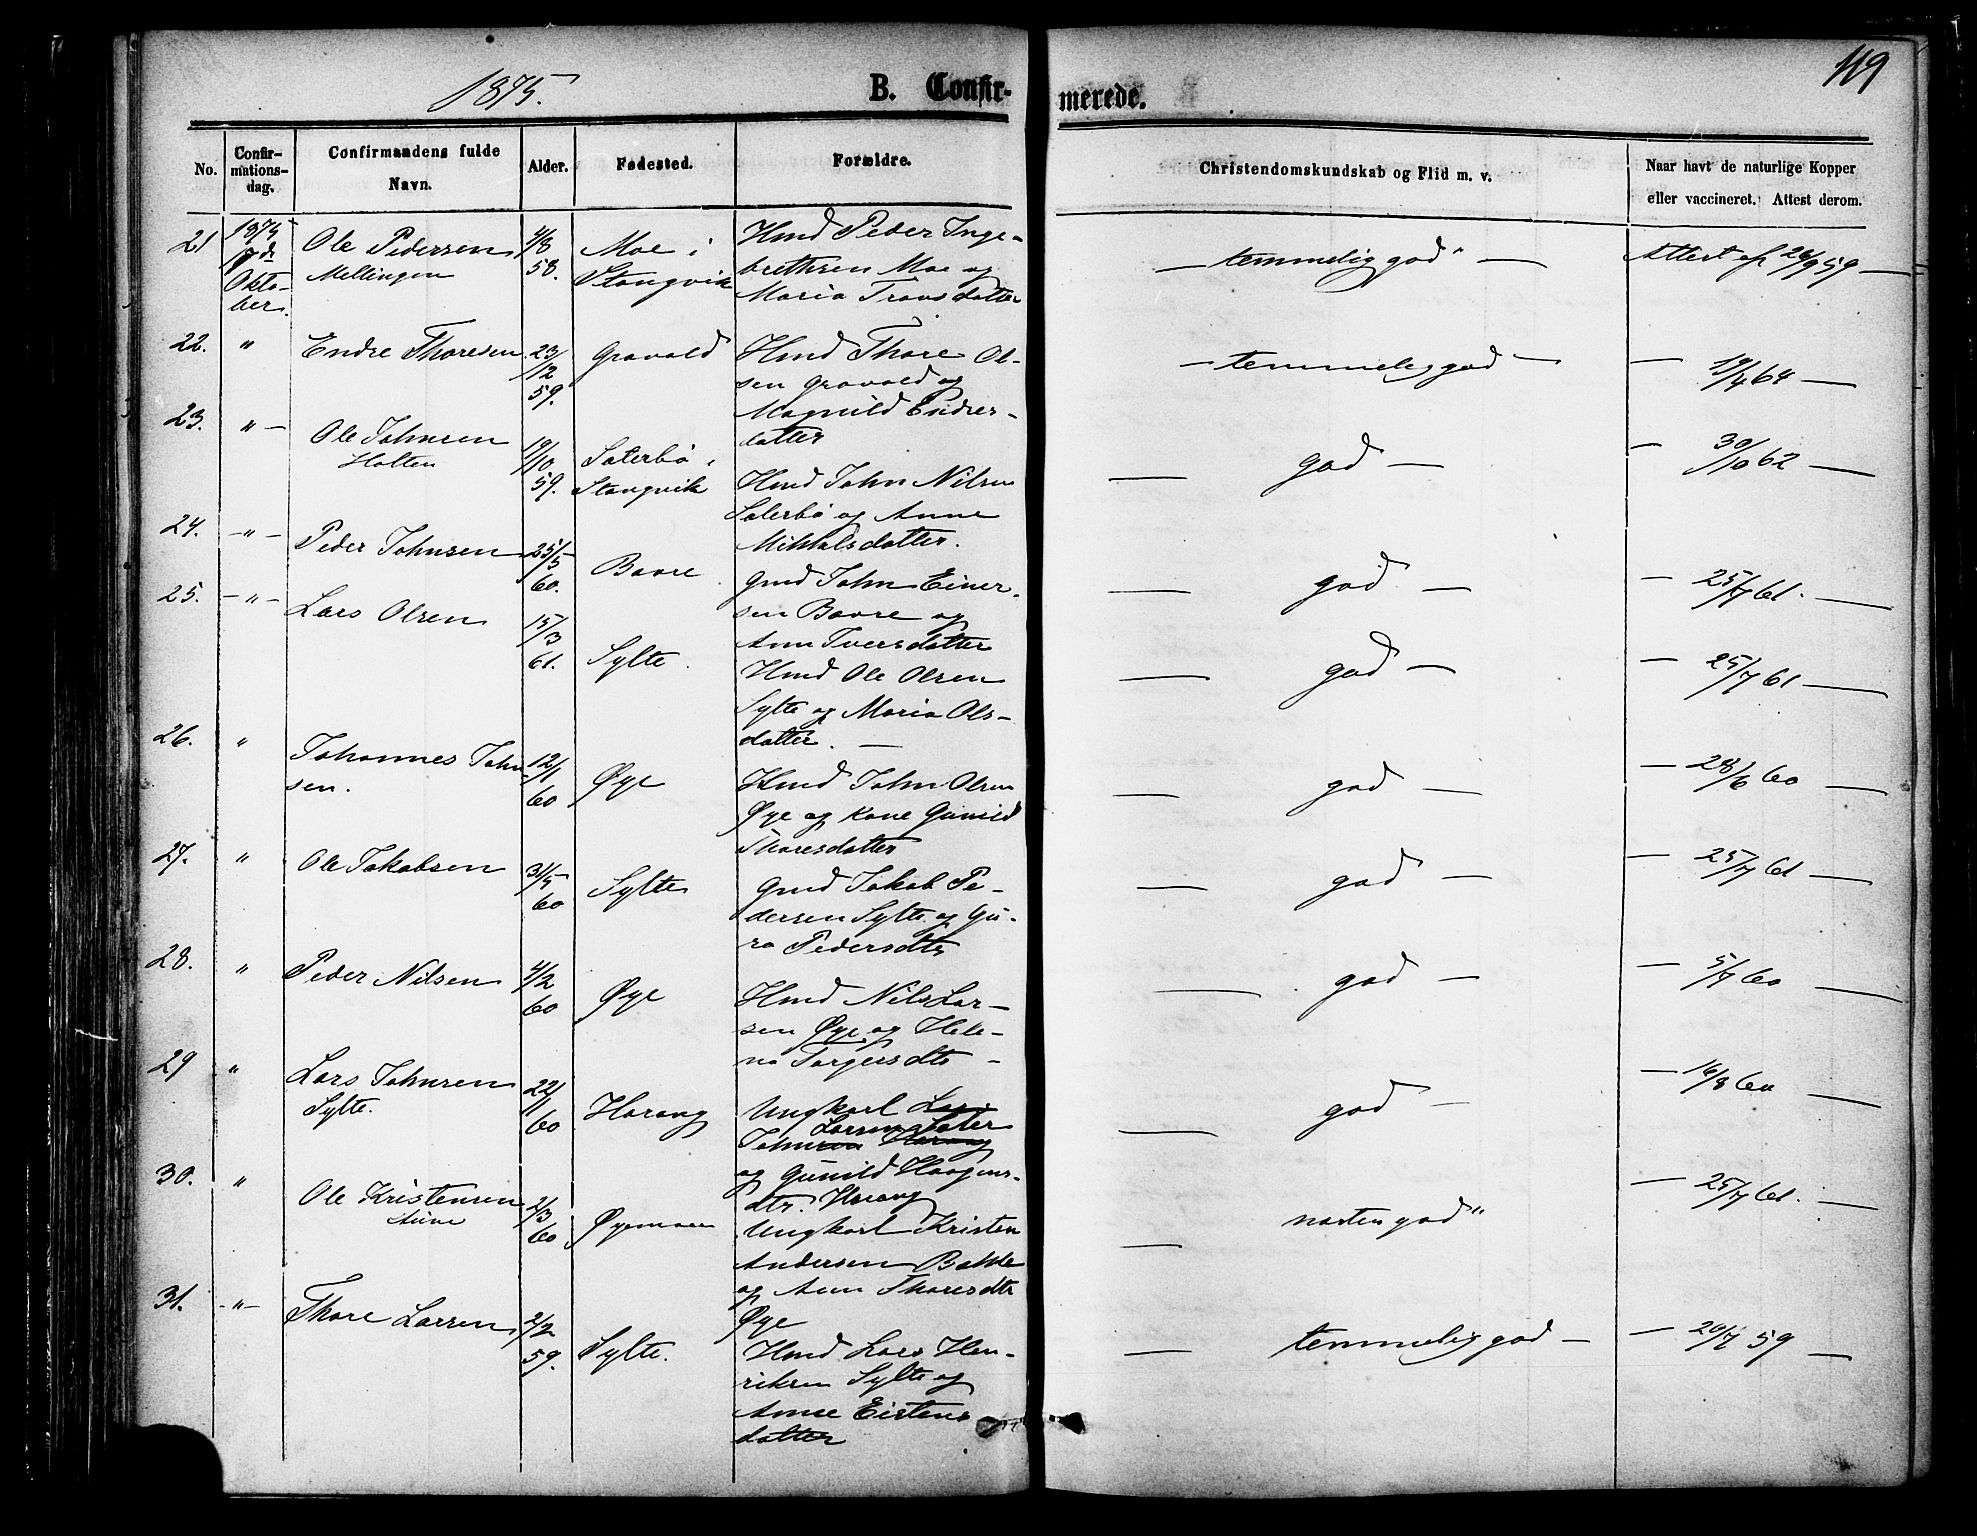 1875.
B. Confir-
merede.
119
No.
Confir-
mations-
dag.
Confirmandens fulde
Navn.
Alder.
Fødested.
Forældre.
Christendomskundskab og Flid m. v.
Naar havt de naturlige Kopper
eller vaccineret. Attest derom.
21
1875
de
Okto-
ber.
Ole Pedersen
Mellingen
4/8
58.
Moe i
Stangvik
Hmd Peder Inge-
brethsen Moe og
Maria Tronsdatter
— temmelig god" —
Attest af 26/9 59 —
22.
"
Endre Thoresen
23/
12
59.
Gravold
Hmd Thore Ol-
sen Gravold og
Magnild Endres-
datter
— temmelig god —
— 19/4 64 —
23.
" —
Ole Johnsen
Holten
19/
10
59.
Saterbø i
Stangvik
Hmd John Nilsen
Saterbø og Anne
Mikkalsdatter.
— god —
— 30/10 62 —
24.
— " —
Peder Johnsen
25/
5
60.
Bavre
Gmd John Einer-
sen Bavre og
Ann Iversdatter
— god —
— 25/7 61. —
25.
— " —
Lars Olsen
15/
3
61.
Sylte.
Hmd Ole Olsen
Sylte og Maria Ols-
datter. —
— god —
— 25/7 61 —
26.
"
Johannes John
sen.
12/1
60
Øye
Hmd John Olsen
Øye og Kone Gunild
Thoresdatter
— god —
— 28/6 60 —
27.
"
Ole Jakobsen
31/5
60
Sylte
Gmd Jakob Pe-
dersen Sylte og Gu-
ro Pedersdtr
— god —
— 25/7 61 —
28.
"
Peder Nilsen
4/2
60
Øye
Hmd Nils Lar-
sen Øye og Hele-
na Torgersdtr —
— god —
— 5/7 60 —
29
"
Lars Johnsen
Sylte.
22/
1
60
Harang
Ungkarl Lars
Larsen Sater
Johnsen Harang
og Gunild Haagens-
dtr. Harang
— god —
— 16/8 60 —
30.
"
Ole Kristensen
Aune
2/3
60
Øyemoen
Ungkarl Kristen
Andersen Bakke
og Ann Thoresdtr
Øye
— næsten god"
— 25/7 61. —
31.
— " —
Thore Larsen
2/2
59.
Sylte.
Hmd Lars Hen-
riksen Sylte og
Anne Eistens
datter
— temmelig god —
— 20/7 59 —